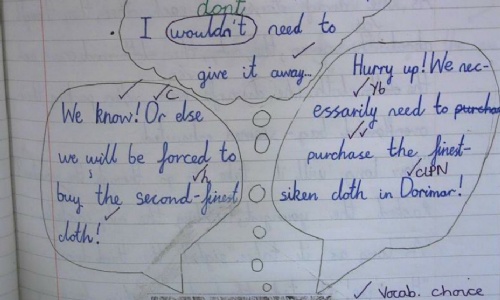 dont
. I wouldn't need to
give it away...
We know! Or else
we will be forced to
buy the second-finest
cloth!
Hurry up! We nec-
essarily need to purcha
purchase the finest-
siken cloth in Dorimar!
C
Yb
h
CLPN
✓ Vocab. choice